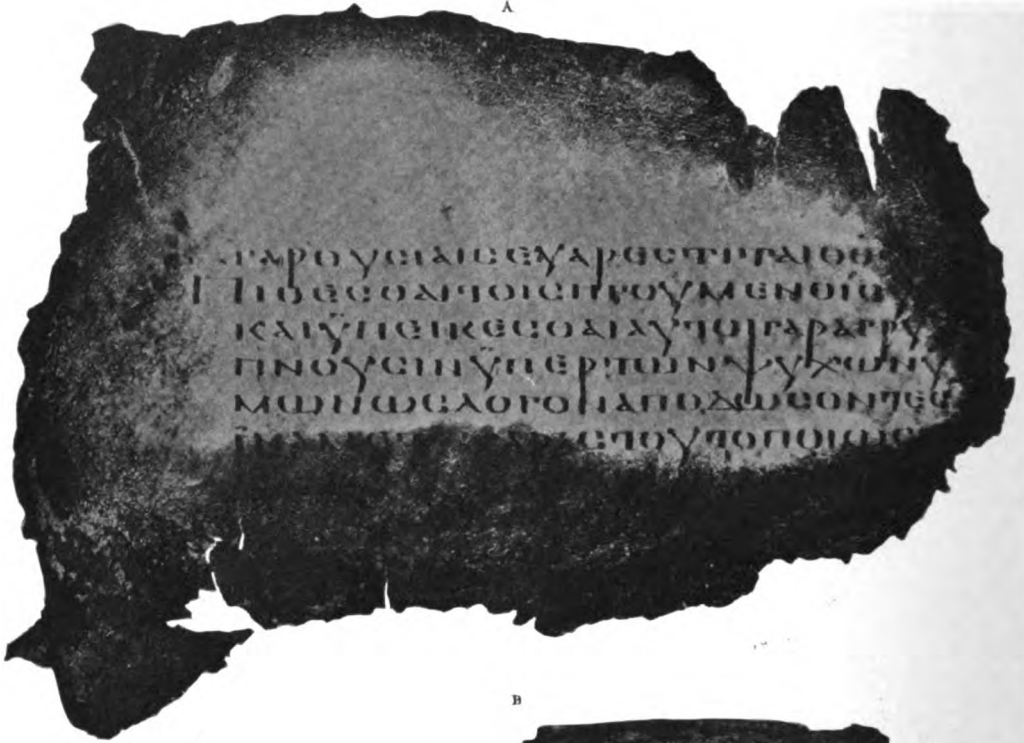 A
ΓΑΡΟΥϹΙΑΙϹΕΥΑΡΕϹΤΙΤΑΙΟΘ
ΠΙΘΕϹΘΑΙΤΟΙϹΗΓΟΥΜΕΝΟΙϹ
ΚΑΙΫΠΕΙΚΕϹΘΑΙΑΥΤΟΙΓΑΡΑΓΡΥ
ΠΝΟΥϹΙΝΫΠΕΡΤΩΝΨΥΧΩΝΥ
ΜΩΝΩϹΛΟΓΟΝΑΠΟΔΩϹΟΝΤΕϹ
ϹΤΟΥΤΟΠΟΙΩϹ
B